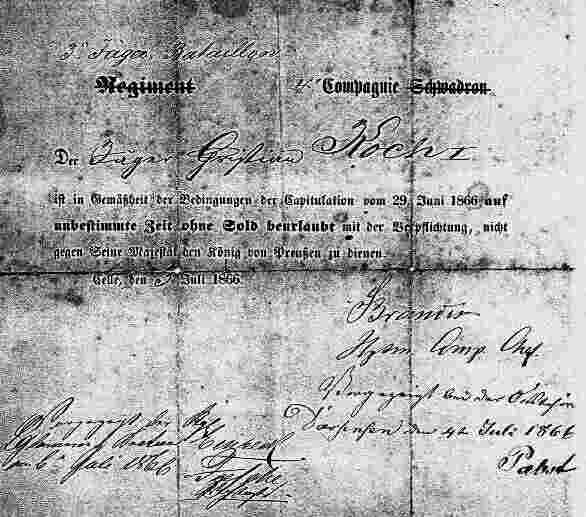 3s Jäger Bataillon
Regiment 4e Compagnie Schwadron.
Der Jäger Christian Koch I
ist in Gemäßheit der Bedingungen der Capitulation vom 29. Juni 1866 auf
unbestimmte Zeit ohne Sold beurlaubt mit der Verpflichtung, nicht
gegen Seine Majestät den König von Preußen zu dienen.
Celle, den Juli 1866.
Brandis
Hptm. Comp. Chef.
Vorgezeigt bei der
den 4t Juli 1866
Pabst
Vorgezeigt bei
6 Juli 1866